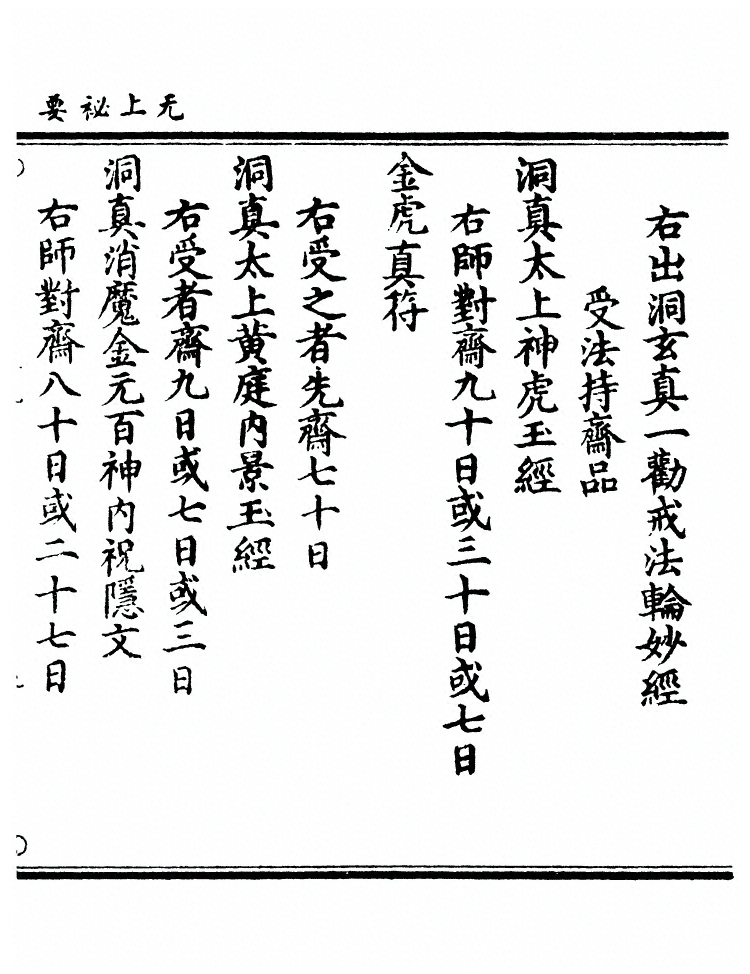 无上祕要
右出洞玄真一勸戒法輪妙經
受法持齋品
洞真太上神虎玉經
右師對齋九十日或三十日或七日
金虎真符
右受之者先齋七十日
洞真太上黃庭內景玉經
右受者齋九日或七日或三日
洞真消魔金元百神內祝隱文
右師對齋八十日或二十七日